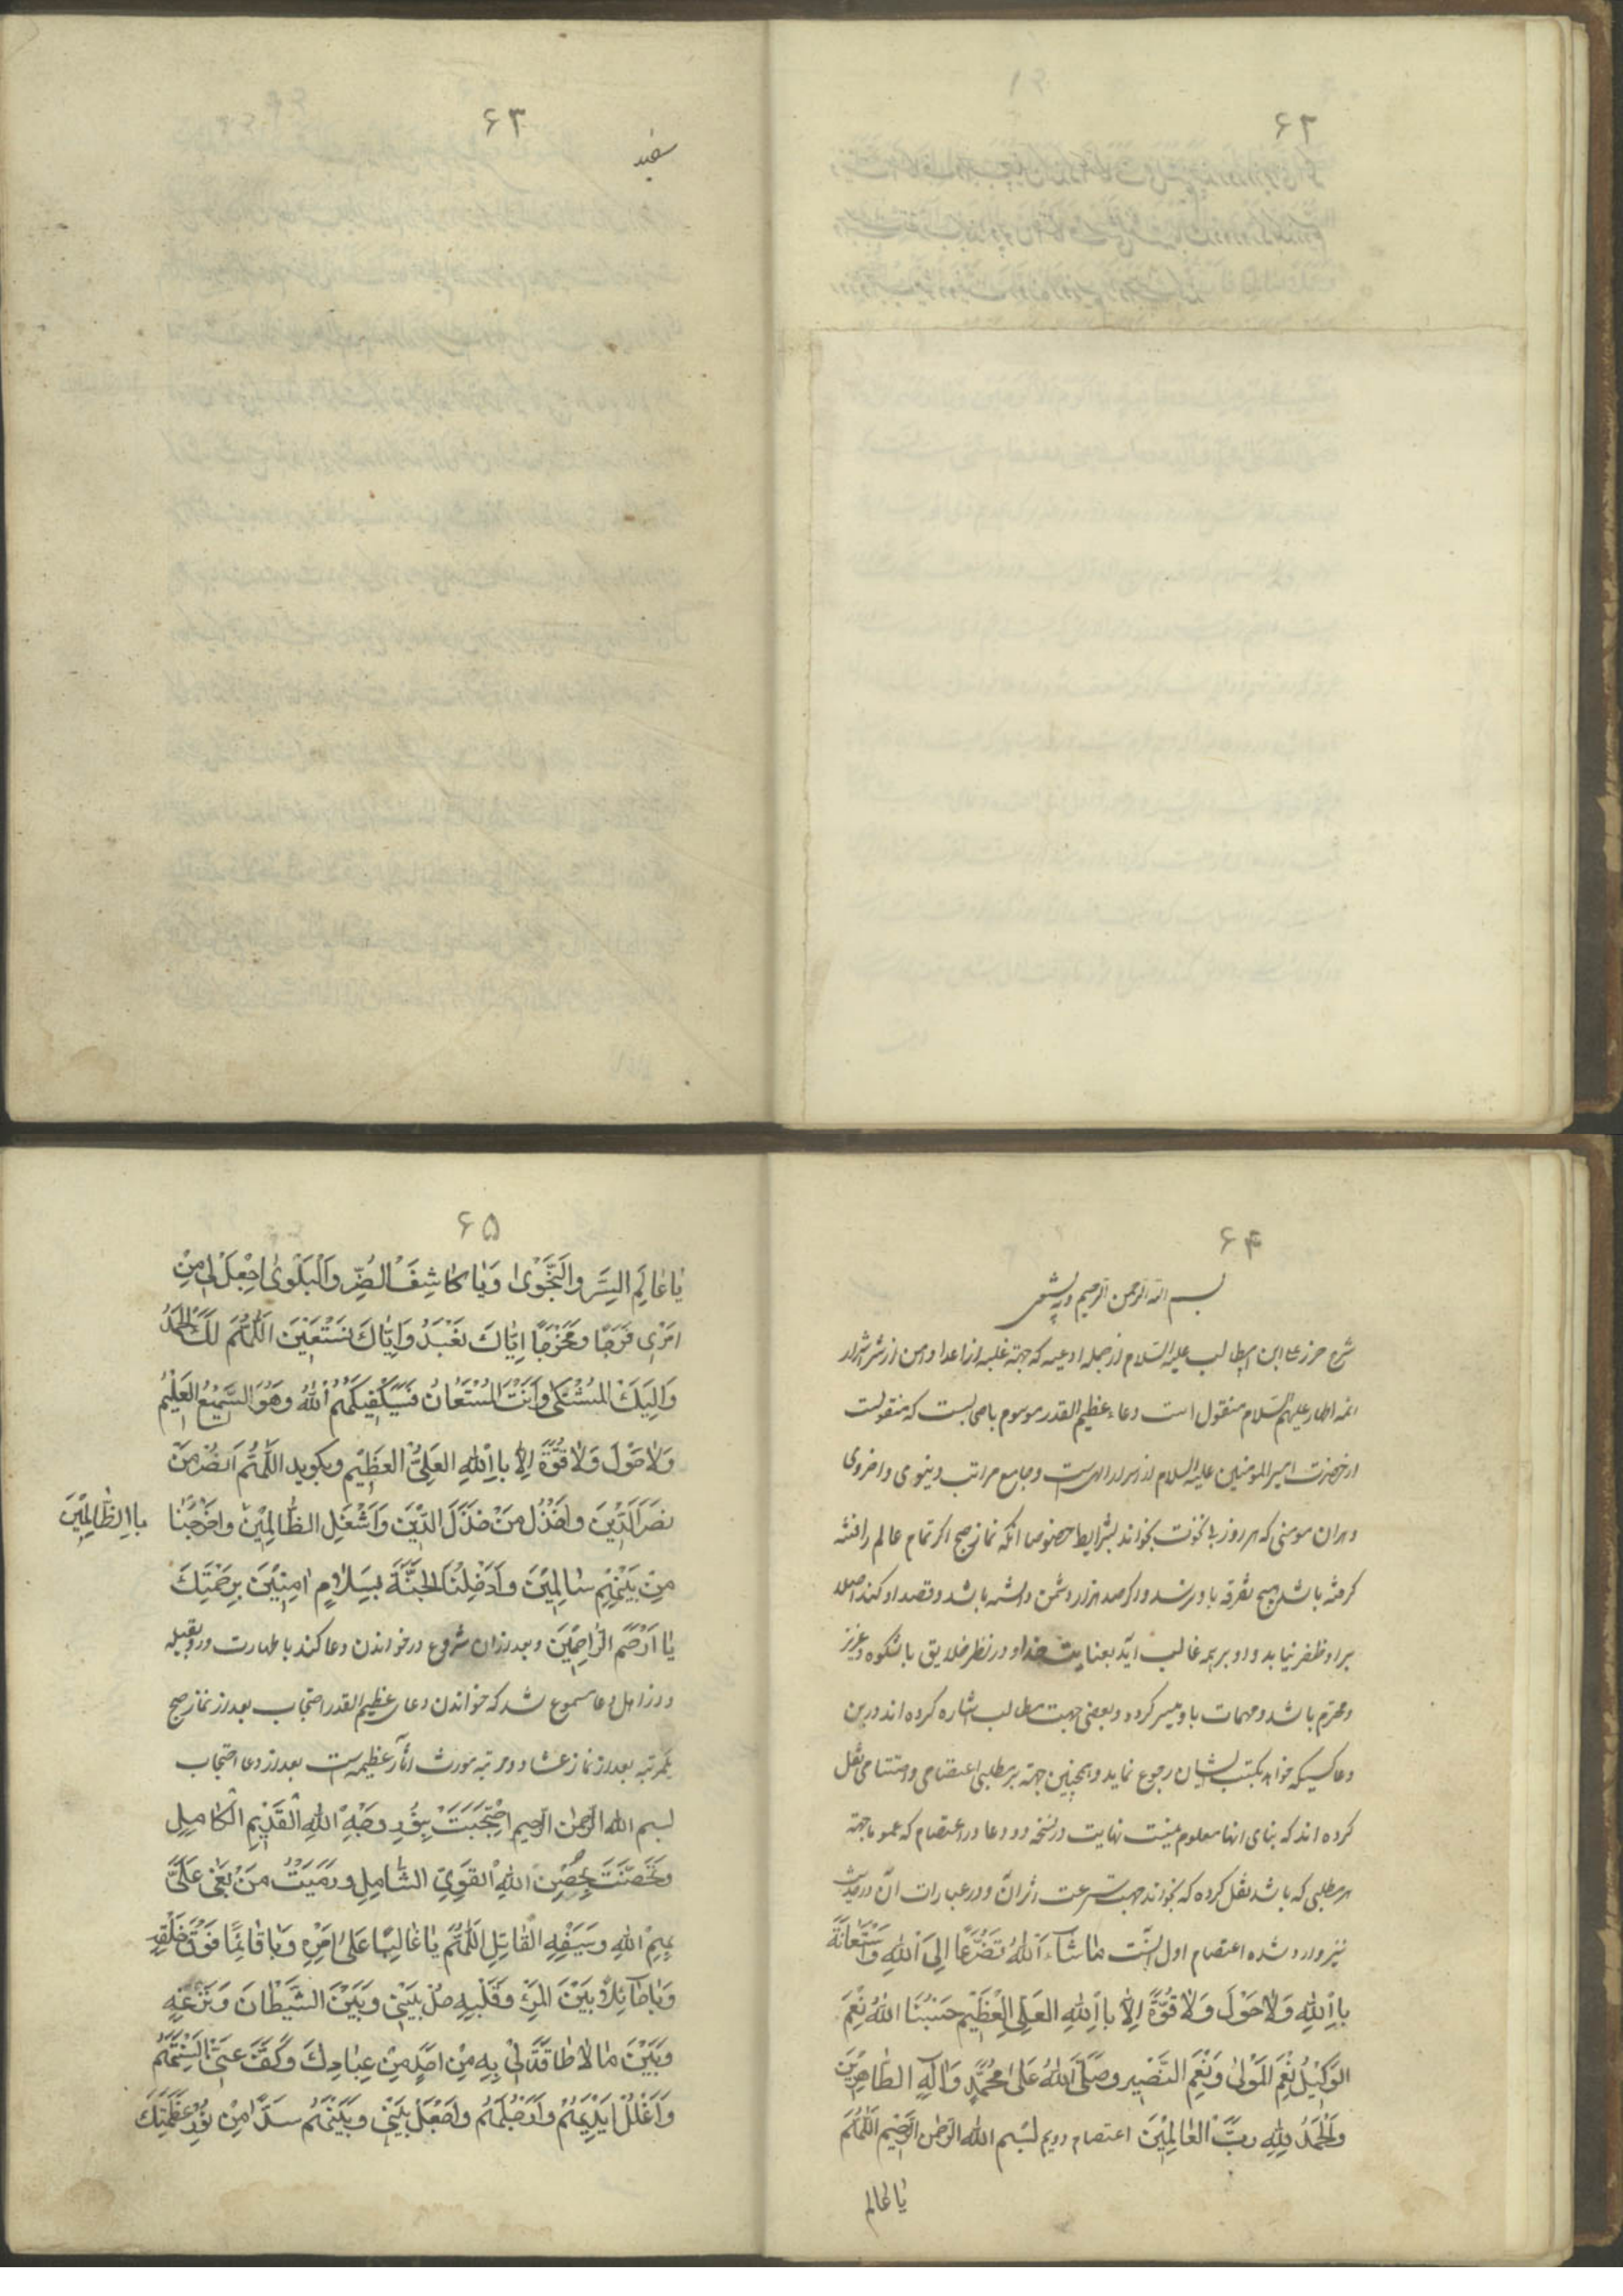 ۶۲
۶۳
سفید
۶۴
بسم الله الرحمن الرحیم وبه نستعین
شرح حرز علی ابن ابیطالب علیه السلام از جمله ادعیه که جهة غلبه از اعدا و امن از شر اشرار
ائمه اطهار علیهم السلام منقول است دعاء عظیم القدر موسوم باحتجابست که منقولست
از حضرت امیر المومنین علیه السلام از اسرار الهیست و جامع مراتب دینوی و اخروی
و هران مومنی که هر روز بخواند بشرایط خصوصا انکه نماز صبح اکر تمام عالم را فتنه
کرفته باشد هیچ تفرقه باو نرسد و اکر صد هزار دشمن داشته باشد و قصد او کنند اصلا
بر او ظفر نیابد و او بر همه غالب آید بعنایت خدا و در نظر خلایق با شکوه و عزیز
و محترم باشد و مهمات باو میسر کردد و بعضی جهت مطالب اشاره کرده اند درین
دعا کسیکه خواهد بکتب ایشان رجوع نماید و همچنین جهة هر مطلبی اعتصامی و اختتامی نقل
کرده اند که بنای انها معلوم نیست نهایت در نسخه دو دعا در اعتصام که عموما جهة
هر مطلبی که باشد نقل کرده که بخواند جهت سرعت اثر آن و در عبارات آن در حدیث
نیز وارد شده اعتصام اول اینست ما شاء الله تَضَرُّعًا اِلَی اللهِ وَاسْتِعَانَةً
بِاللهِ وَلا حَوْلَ وَلا قُوَّةَ اِلا بِاللهِ العَلِیِ العَظِیْم حَسْبُنَا اللهُ نِعْمَ
الوَکِیْلُ نِعْمَ المَوْلی وَنِعْمَ النَّصِیْر وصَلَّی اللهُ عَلی مُحَمَّدٍ وَالِهِ الطَّاهِرِیْنَ
وَالْحَمْدُ لِلّهِ رَبِّ العالَمِیْنَ اعتصام دویم بسم الله الرحمن الرحیم اَللّهُمَّ
یا عالم
۶۵
یا عالِمَ السِرِّ والنَّجْوی وَیا کاشِفَ الضُرِّ والبَلْوی اِجْعَلْ لی مِنْ
اَمْرِی فَرَجًا وَمَخْرَجًا اِیّاكَ نَعْبُدُ وَاِیّاكَ نَسْتَعِیْنَ اَللّهُمَّ لَكَ الحَمْدُ
وَاِلَیْكَ المُشْتَکی وَاَنْتَ المُسْتَعانُ فَسَیَکْفِیْکَهُمُ اللهُ وَهُوَ السَّمِیْعُ العَلِیْمُ
وَلا حَوْلَ وَلا قُوَّةَ اِلا بِاللهِ العَلِیِّ العَظِیْم وبکوید اَللّهُمَّ انْصُرْ مَنْ
نَصَرَ الدِّیْنَ واخْذُلْ مَنْ خَذَلَ الدِّیْنَ وَاشْغَلِ الظّالِمِیْنَ واخْرِجْنا
باالظّالِمِیْنَ
مِنْ بَیْنِهِمْ سالِمِیْنَ وَاَدْخِلْنَا الجَنَّةَ بِسَلامٍ امِنِیْنَ بِرَحْمَتِكَ
یا اَرْحَمَ الرّاحِمِیْنَ وبعد ازان شروع در خواندن دعا کند با طهارت و رو بقبله
و از اهل دعا مسموع شد که خواندن دعای عظیم القدر احتجاب بعد از نماز صبح
یکمرتبه بعد از نماز عشا دو مرتبه مورث آثار عظیمه است بعد از دعا احتجاب
بسم الله الرحمن الرحیم اِحْتَجَبْتُ بِنُورِ وَجْهِ اللهِ القَدِیْمِ الکامِلِ
وتَحَصَّنْتُ بِحِصْنِ اللهِ القَوِیِّ الشّامِلِ ورَمَیْتُ مَنْ بَغی عَلَیَّ
بِسَهْمِ اللهِ وسَیْفِهِ القاتِلِ اَللّهُمَّ یا غالِبًا عَلی اَمْرِهِ وَیا قائِمًا فَوْقَ خَلْقِهِ
وَیا حائِلاً بَیْنَ المَرْءِ وَقَلْبِهِ حُلْ بَیْنِیْ وَبَیْنَ الشَّیْطانَ وَنَزْغِهِ
وَبَیْنَ ما لا طاقَةَ لِیْ بِهِ مِنْ اَحَدٍ مِنْ عِبادِكَ وکُفَّ عَنِّیْ اَلْسِنَتَهُمْ
وَاغْلُلْ اَیْدِیَهُمْ وَاَرْجُلَهُمْ وَاجْعَلْ بَیْنِیْ وَبَیْنَهُمْ سَدًّا مِنْ نُورِ عَظَمَتِكَ